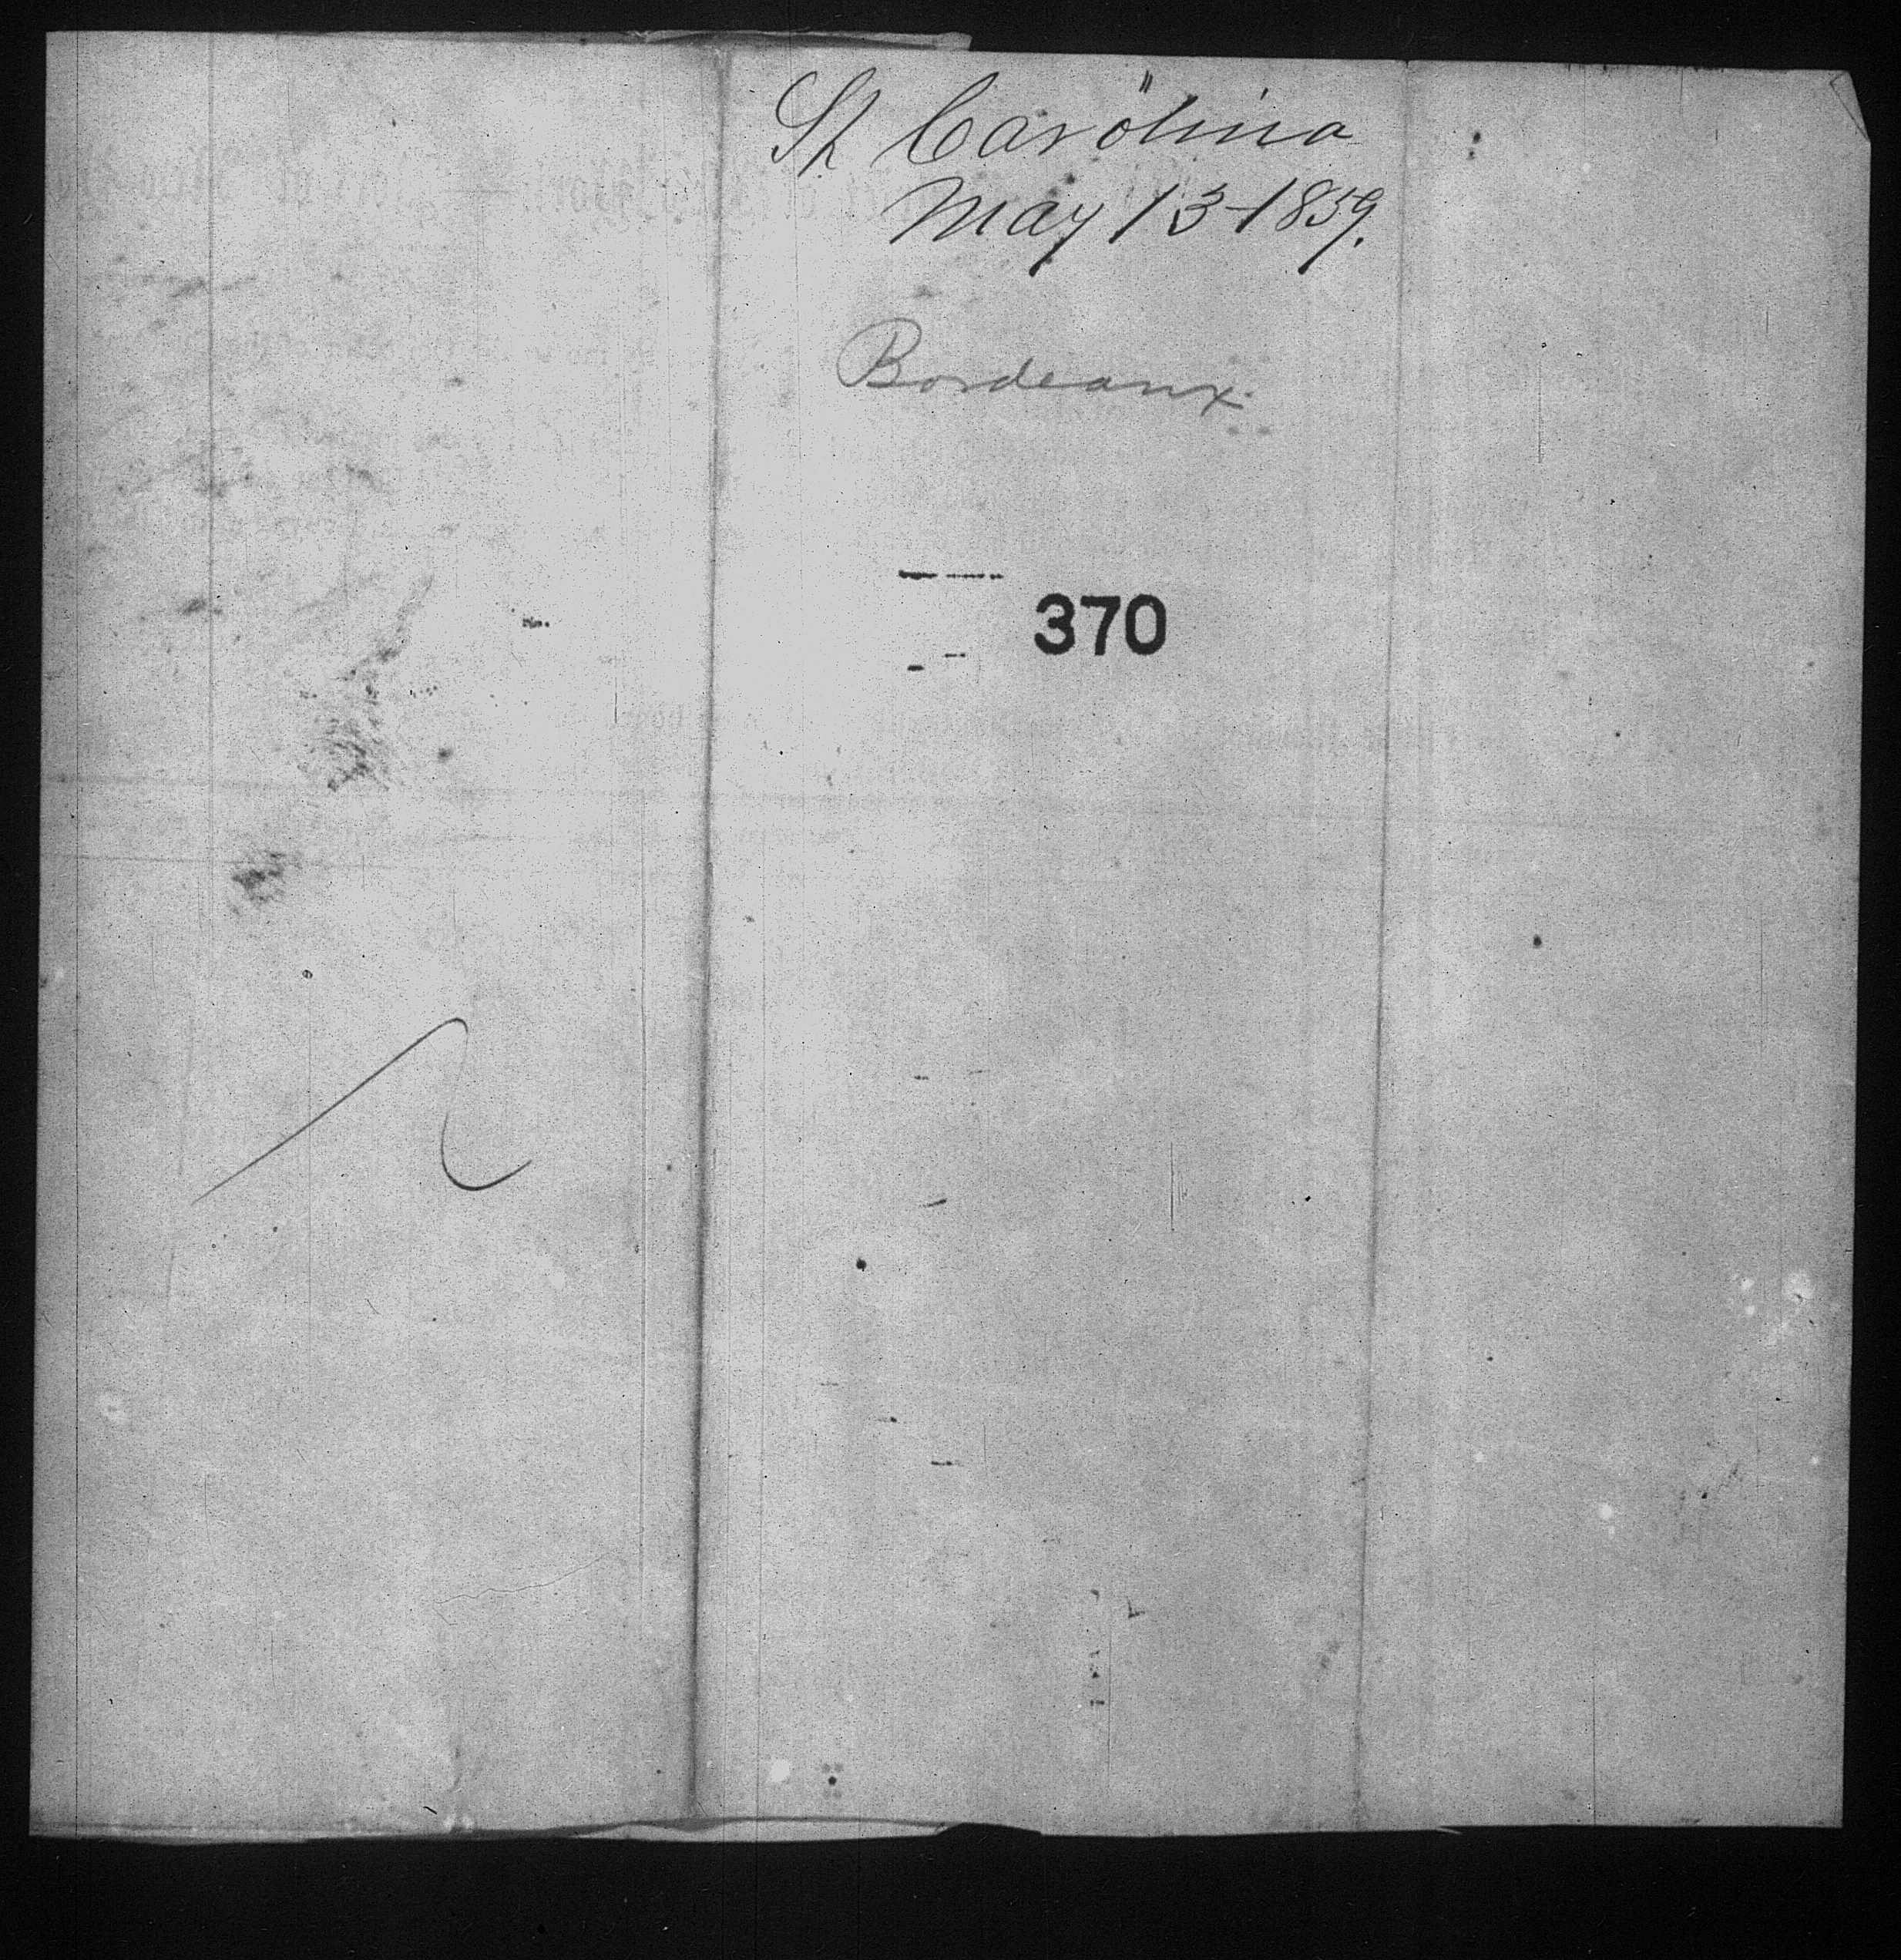 Sh Carolina
May 13-1859.
Bordeaux
370